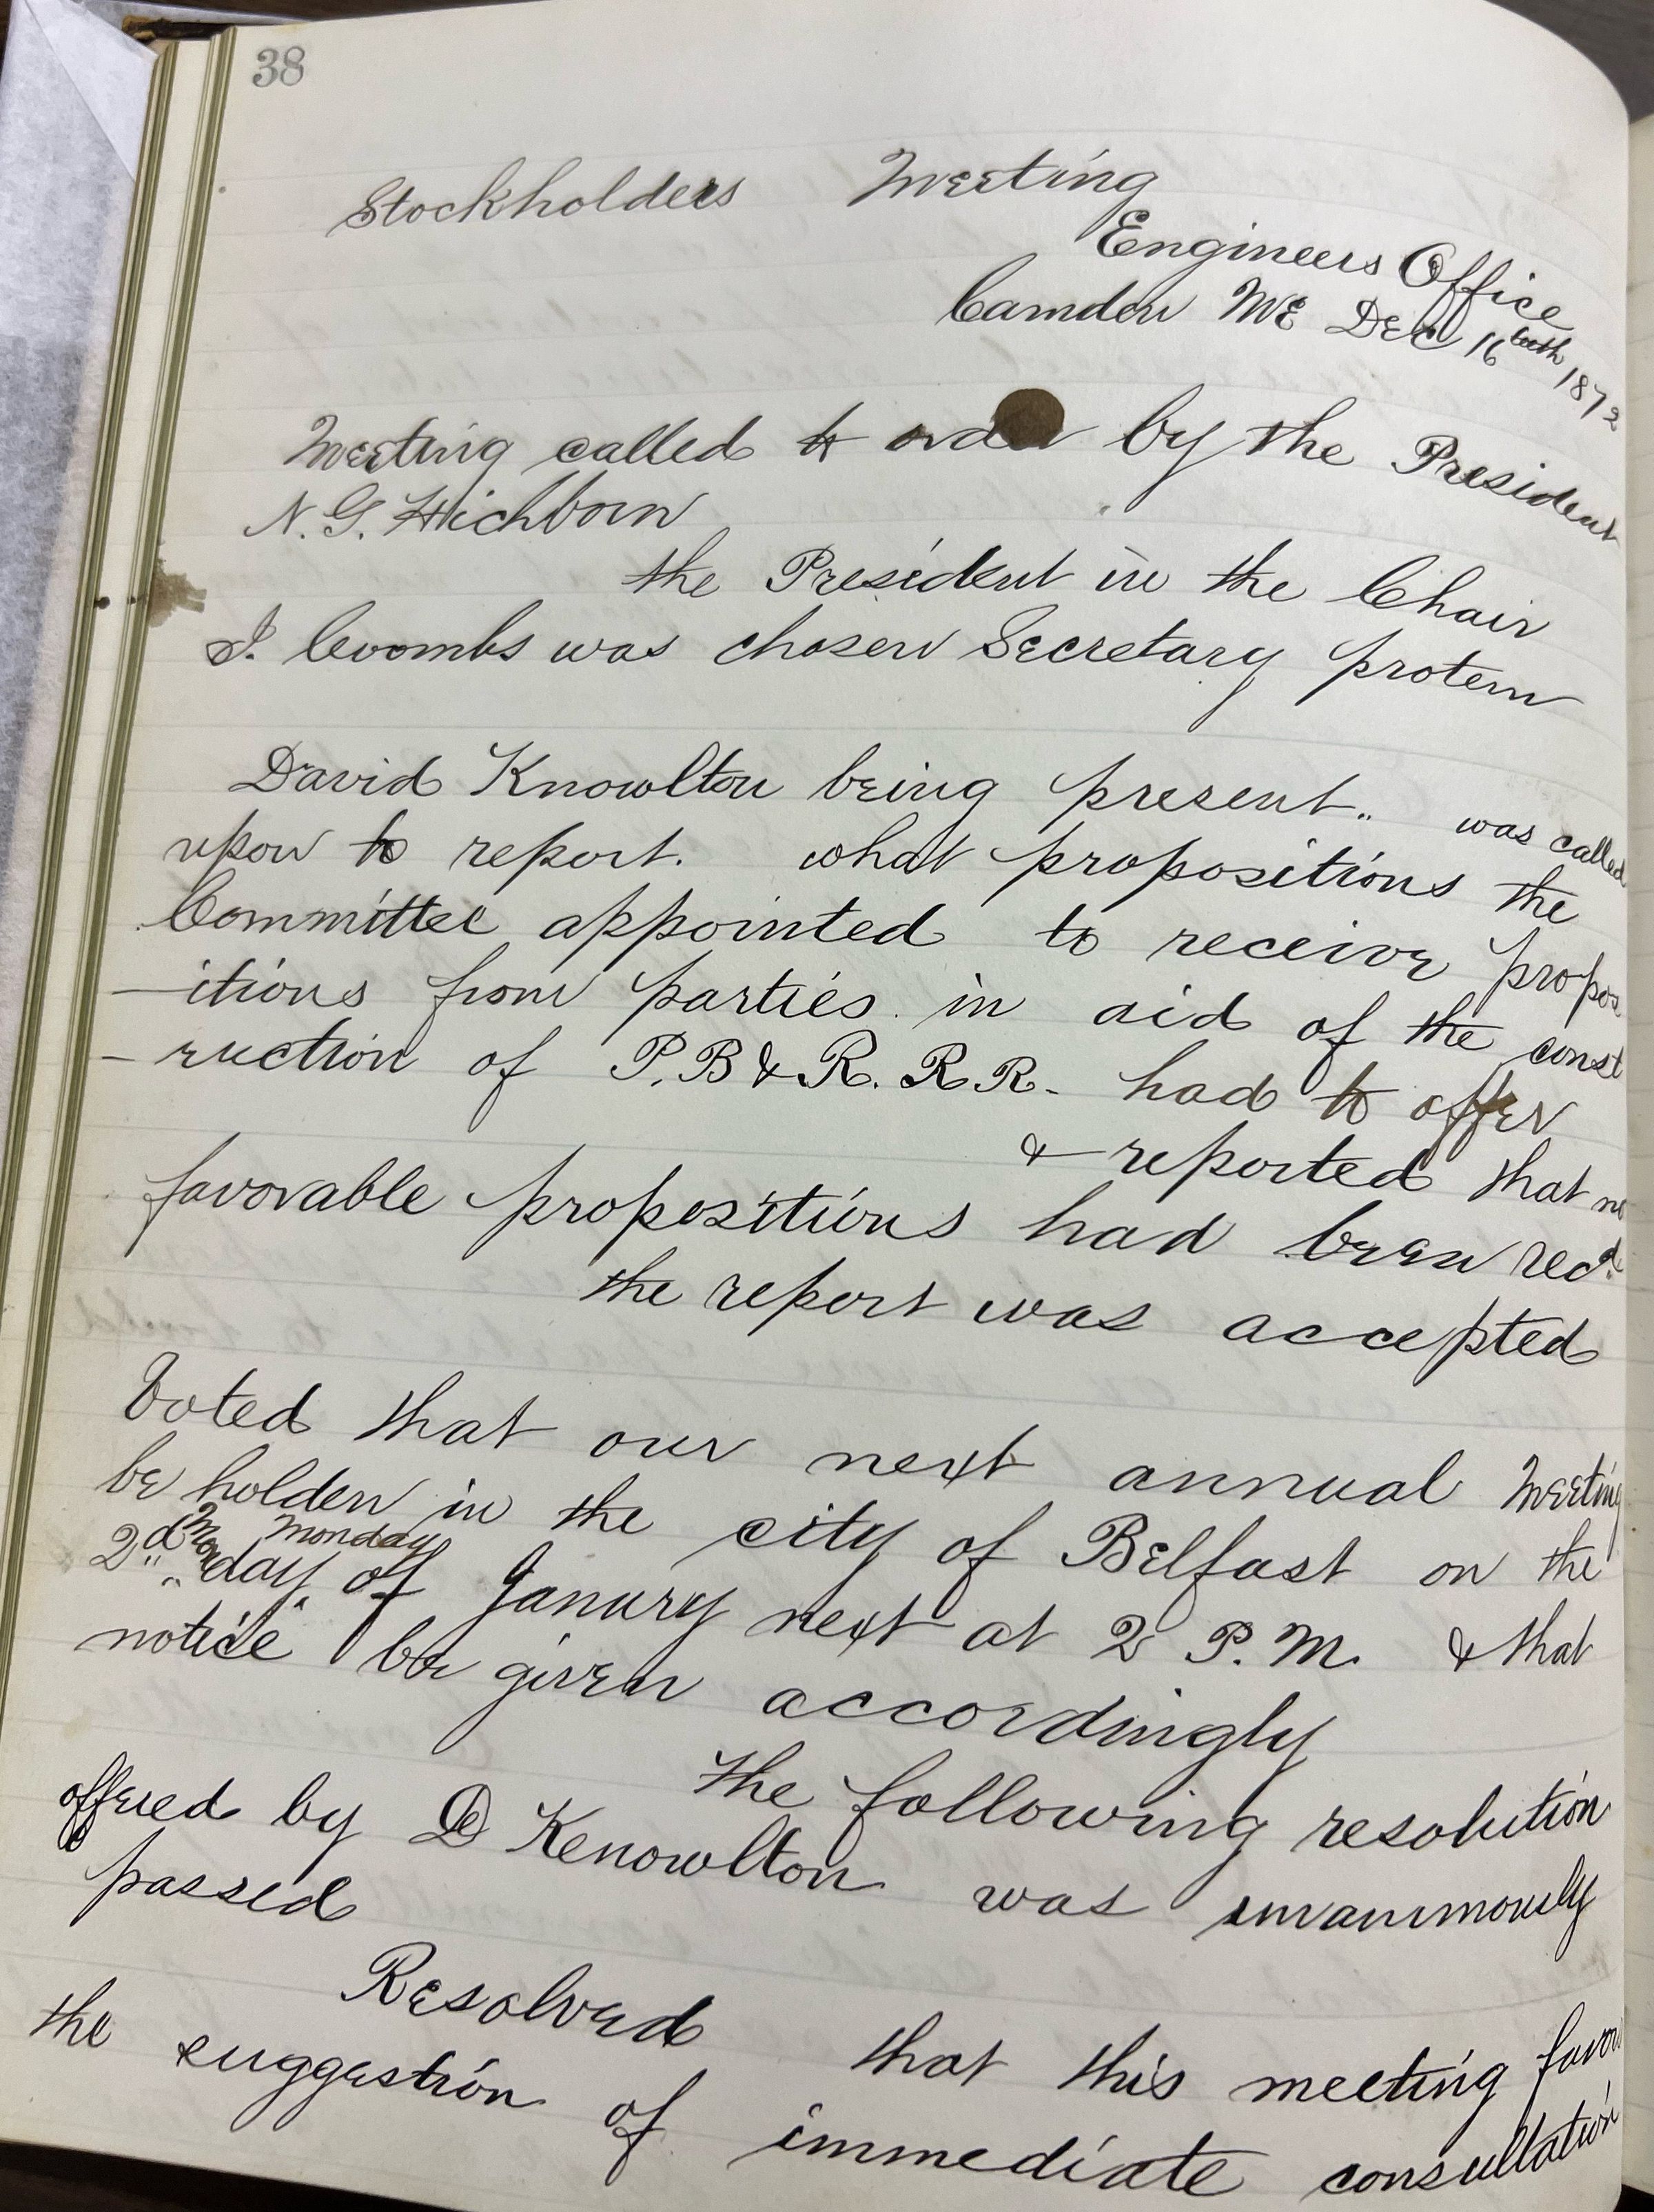 38
Stockholders Meeting
Engineers Office
Camden ME Dec 16teth 1872
Meeting called to order by the President
N. G. Hichborn
the President in the Chair
I. Coombs was chosen Secretary protem
David Knowlton being present.. was called
upon to report. what propositions the
Committee appointed to receive propos
-itions from parties in aid of the const
-ruction of P. B & R. R R- had to offer
& reported that no
favorable propositions had been recd.
the report was accepted
Voted that our next annual Meeting
be holden in the city of Belfast on the
Monday
2d Monday of Janury next at 2 P. M. & that
notice be given accordingly
the following resolution
offered by D Kenowlton was unanimously
passed
Resolved that this meeting favor
the suggestion of immediate consultation